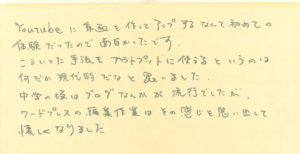 Youtubeに動画を作ってアップするなんて初めての
体験だったので面白かったです。
こういった手法をアウトプットに使えるというのは
何だか現代的だなと思いました。
中学の頃はブログなんかが流行でしたが、
ワードプレスの編集作業はその感じを思い出して
懐しくなりました